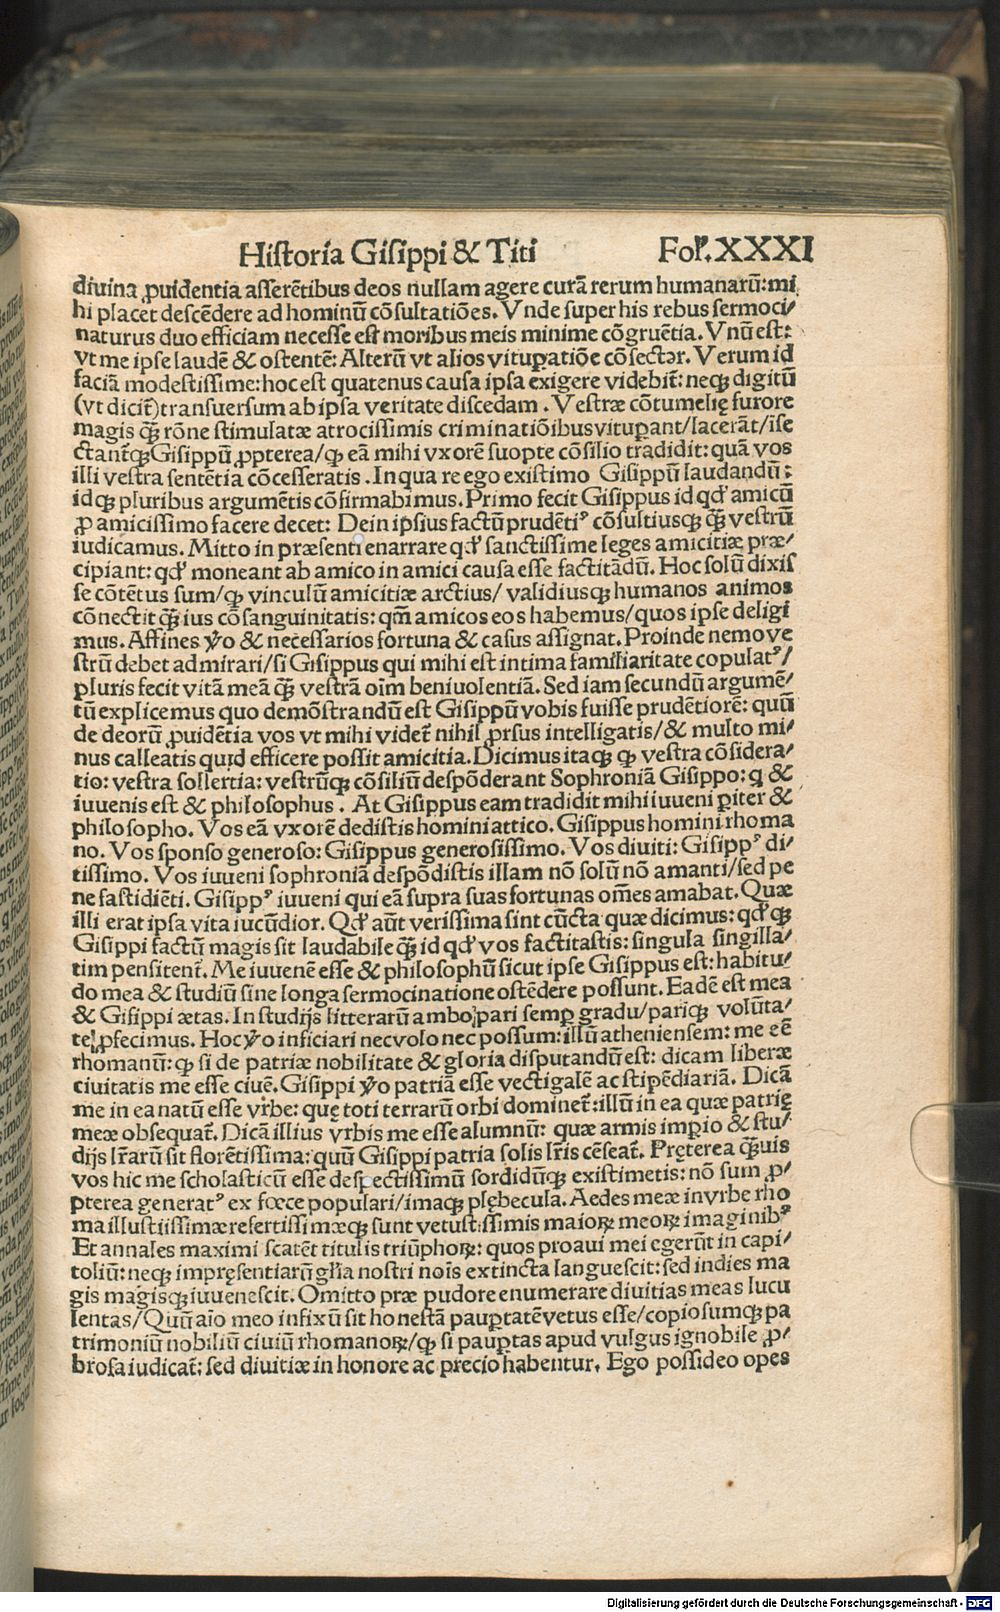 Historia Gisippi & Titi Fol. XXXI
diuina ꝓuidentia asserētibus deos nullam agere curā rerum humanarū: mi
hi placet descēdere ad hominū cōsultatiōes. Vnde super his rebus sermoci/
naturus duo efficiam necesse est moribus meis minime cōgruētia. Vnū est:
vt me ipse laudē & ostentē: Alterū vt alios vituꝑatiōe cōsecter. Verum id
faciā modestissime: hoc est quatenus causa ipsa exigere videbit̄: neqꝫ digitū
(vt dicit̄) transuersum ab ipsa veritate discedam. Vestræ cōtumelię furore
magis qꝫ̄ rōne stimulatæ atrocissimis criminatiōibus vituꝑant/lacerāt/ise
ctant̄qꝫ Gisippū ꝓpterea/ꝙ eā mihi vxorē suopte cōsilio tradidit: quā vos
illi vestra sentētia cōcesseratis. In qua re ego existimo Gisippū laudandū:
idqꝫ pluribus argumētis cōfirmabimus. Primo fecit Gisippus id qđ amicū
ꝓ amicissimo facere decet: Dein ipsius factū prudētiꝰ cōsultiusqꝫ qꝫ̄ vestrū
iudicamus. Mitto in præsenti enarrare qđ sanctissime leges amicitiæ præ/
cipiant: qđ moneant ab amico in amici causa esse factitādū. Hoc solū dixis
se cōtētus sum/ꝙ vinculū amicitiæ arctius/ validiusqꝫ humanos animos
cōnectit qꝫ̄ ius cōsanguinitatis: qm̄ amicos eos habemus/quos ipse deligi
mus. Affines v̊o & necessarios fortuna & casus assignat. Proinde nemo ve
strū debet admirari/si Gisippus qui mihi est intima familiaritate copulatꝰ/
pluris fecit vitā meā qꝫ̄ vestrā oīm beniuolentiā. Sed iam secundū argumē/
tū explicemus quo demōstrandū est Gisippū vobis fuisse prudētiorē: quū
de deorū ꝓuidētia vos vt mihi videt̄ nihil ꝓrsus intelligatis/& multo mi/
nus calleatis quid efficere possit amicitia. Dicimus itaqꝫ ꝙ vestra cōsidera/
tio: vestra sollertia: vestrūqꝫ cōsiliū despōderant Sophroniā Gisippo: q̇ &
iuuenis est & philosophus. At Gisippus eam tradidit mihi iuueni ꝑiter &
philosopho. Vos eā vxorē dedistis homini attico. Gisippus homini rhoma
no. Vos sponso generoso: Gisippus generosissimo. Vos diuiti: Gisippꝰ di/
tissimo. Vos iuueni sophroniā despōdistis illam nō solū nō amanti/sed pe
ne fastidiēti. Gisippꝰ iuueni qui eā supra suas fortunas om̄es amabat. Quæ
illi erat ipsa vita iucūdior. Qđ aūt verissima sint cūcta quæ dicimus: qđ qꝫ
Gisippi factū magis sit laudabile qꝫ̄ id qđ vos factitastis: singula singilla/
tim pensitent̄. Me iuuenē esse & philosophū sicut ipse Gisippus est: habitu/
do mea & studiū sine longa sermocinatione ostēdere possunt. Eadē est mea
& Gisippi ætas. In studijs litterarū ambo pari semꝑ gradu/pariqꝫ volūta/
te ꝓfecimus. Hoc v̊o inficiari nec volo nec possum: illū atheniensem: me eē
rhomanū: ꝙ si de patriæ nobilitate & gloria disputandū est: dicam liberæ
ciuitatis me esse ciuē. Gisippi v̊o patriā esse vectigalē ac stipēdiariā. Dicā
me in ea natū esse vrbe: quę toti terrarū orbi dominet̄: illū in ea quæ patrię
meæ obsequat̄. Dicā illius vrbis me esse alumnū: quæ armis imꝑio & stu/
dijs lr̄arū sit florētissima: quū Gisippi patria solis lr̄is cēseat̄. Pręterea qꝫ̄uis
vos hic me scholasticū esse despectissimū sordidūqꝫ existimetis: nō sum ꝓ/
pterea generatꝰ ex fœce populari/imaqꝫ plębecula. Aedes meæ in vrbe rho
ma illustiissimæ refertissimæqꝫ sunt vetustissimis maioꝝ meoꝝ imaginibꝰ
Et annales maximi scatēt titulis triūphoꝝ: quos proaui mei egerūt in capi/
toliū: neqꝫ impręsentiarū gl̄ia nostri noīs extincta languescit: sed indies ma
gis magisqꝫ iuuenescit. Omitto præ pudore enumerare diuitias meas lucu
lentas/Quū aīo meo infixū sit honestā pauꝑtatē vetus esse/copiosumqꝫ pa
trimoniū nobiliū ciuiū rhomanoꝝ/ꝙ si pauꝑtas apud vulgus ignobile ꝓ/
brosa iudicat̄: sed diuitiæ in honore ac precio habentur. Ego possideo opes
Digitalisierung gefördert durch die Deutsche Forschungsgemeinschaft - DFG